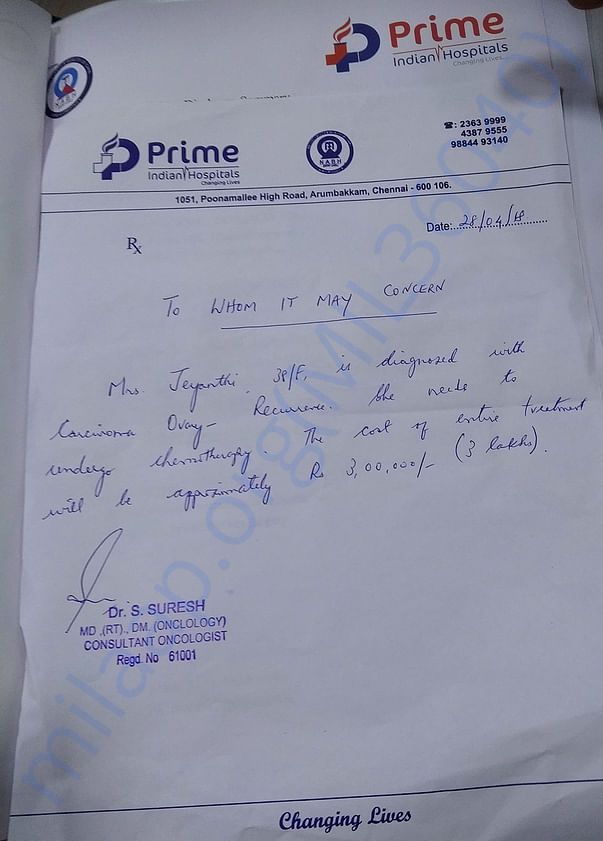 Prime
Indian Hospitals
Changing Lives
NABH
Prime
Indian Hospitals
Changing Lives
NABH
☎: 2363 9999
4387 9555
98844 93140
1051, Poonamallee High Road, Arumbakkam, Chennai - 600 106.
Date: 28/04/18
Rx
TO WHOM IT MAY CONCERN
Mrs. Jeyanthi, 38/F, is diagnosed with
Carcinoma Ovary - Recurrence. She needs to
undergo chemotherapy. The cost of entire treatment
will be approximately Rs 3,00,000/- (3 lakhs).
Dr. S. SURESH
MD ,(RT)., DM. (ONCLOLOGY)
CONSULTANT ONCOLOGIST
Regd. No 61001
milaap.org(MIL36040)
Changing Lives